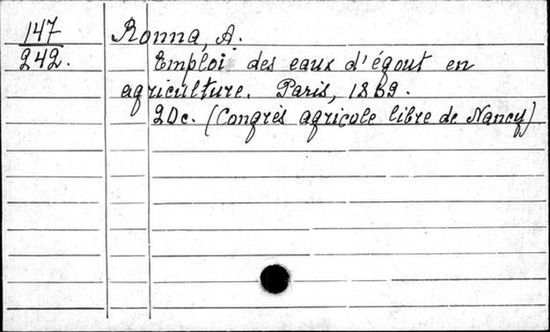 147 Ronna, A.
242. Emploi des eaux d'égout en
agriculture. Paris, 1869.
20c. (Congrès agricole libre de Nancy)